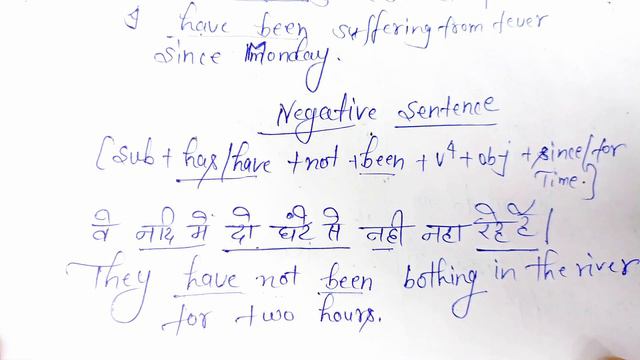 I have been suffering from fever
since Monday.
Negative Sentence
[Sub + has/have + not + been + v⁴ + obj + since/for
Time.]
वे नदि में दो घंटे से नही नहा रहे हैं|
They have not been bothing in the river
for two hours.